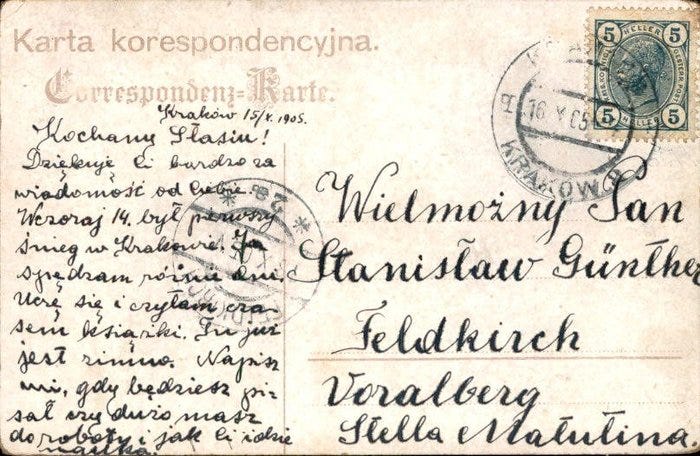 Karta korespondencyjna.
Correspondenz=Karte.
Kraków 15/X. 1905.
Kochany Stasiu!
Dziękuję Ci bardzo za
wiadomość od Ciebie.
Wczoraj 14. był pierwszy
śnieg w Krakowie. Ja
spędzam różnie dni.
Uczę się i czytam cza-
sem książki. Tu już
jest zimno. Napisz
mi, gdy będziesz pi-
sał czy dużo masz
do roboty i jak Ci idzie
nauka.
Wielmożny Pan
Stanisław Günther
Feldkirch
Voralberg
Stella Matutina.
5 HELLER 5
5 HELLER 5
16 X 05
KRAKÓW